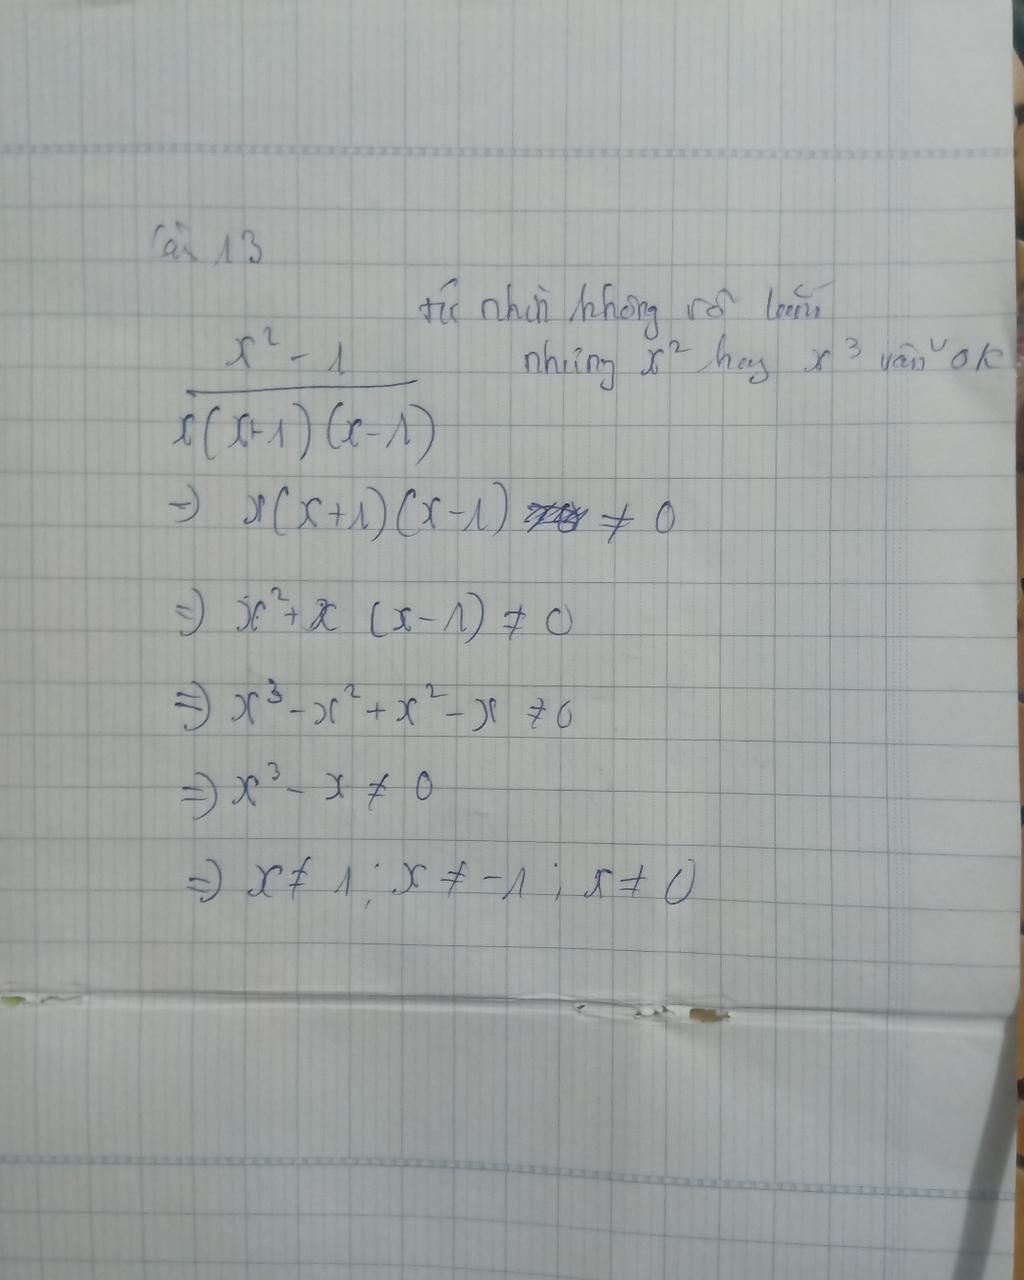 Câu 13
tử nhìn không rõ lắm
nhưng x² hay x³ vẫn OK
x² - 1
x(x+1)(x-1)
=> x(x+1)(x-1) ≠ 0
=> x² + x (x-1) ≠ 0
=> x³ - x² + x² - x ≠ 0
=> x³ - x ≠ 0
=> x ≠ 1 ; x ≠ -1 ; x ≠ 0